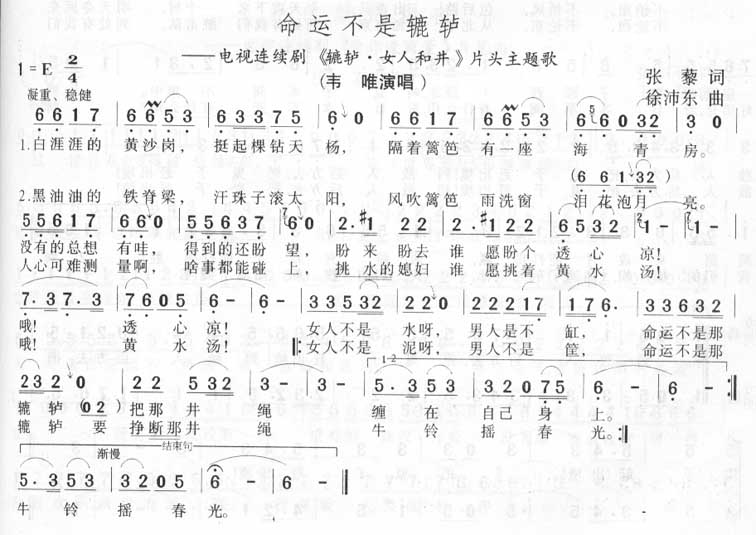 命运不是辘轳
——电视连续剧《辘轳·女人和井》片头主题歌
1=E 2/4
(韦 唯演唱)
张 藜 词
徐沛东 曲
凝重、稳健
6 6 1 7 | 6 6 5 3 | 6 3 3 7 5 | 6 0 | 6 6 1 7 | 6 6 5 3 | 6 6 0 3 2 | 3 0 |
1.白涯涯的 黄沙岗, 挺起棵钻天 杨, 隔着篱笆 有一座 海 青 房。
(6 6 1 3 2)
2.黑油油的 铁脊梁, 汗珠子滚太 阳, 风吹篱笆 雨洗窗 泪花泡月 亮。
5 5 6 1 7 | 6 6 0 | 5 5 6 1 7 | 6 0 | 2. #1 | 2 2. #1 | 2 2 2 2 | 6 5 3 2 | 1 - | 1 - |
没有的总想 有哇, 得到的还盼 望, 盼 来 盼去 谁 愿盼个 透 心 凉!
人心可难测 量啊, 啥事都能碰 上, 挑 水的媳妇 谁 愿挑着 黄 水 汤!
7. 3 7. 3 | 7 6 0 5 | 6 - | 6 - | 3 3 5 3 2 | 2 2 0 | 2 2 2 1 7 | 1 7 6. | 3 3 6 3 2 |
哦! 透 心 凉! 女人不是 水呀, 男人是不 缸, 命运不是那
哦! 黄 水 汤! 女人不是 泥呀, 男人不是 筐, 命运不是那
1-2
2 3 2 0 | 2 2 5 3 2 | 3 - | 3 - | 5. 3 5 3 | 3 2 0 7 5 | 6 - | 6 - :||
辘 轳 (0 2) 把那 井 绳 缠 在 自己 身 上。
辘 轳 要 挣断那井 绳 牛 铃 摇 春 光。:||
渐慢 结束句
5. 3 5 3 | 3 2 0 5 | 6 - | 6 - ||
牛 铃 摇 春 光。